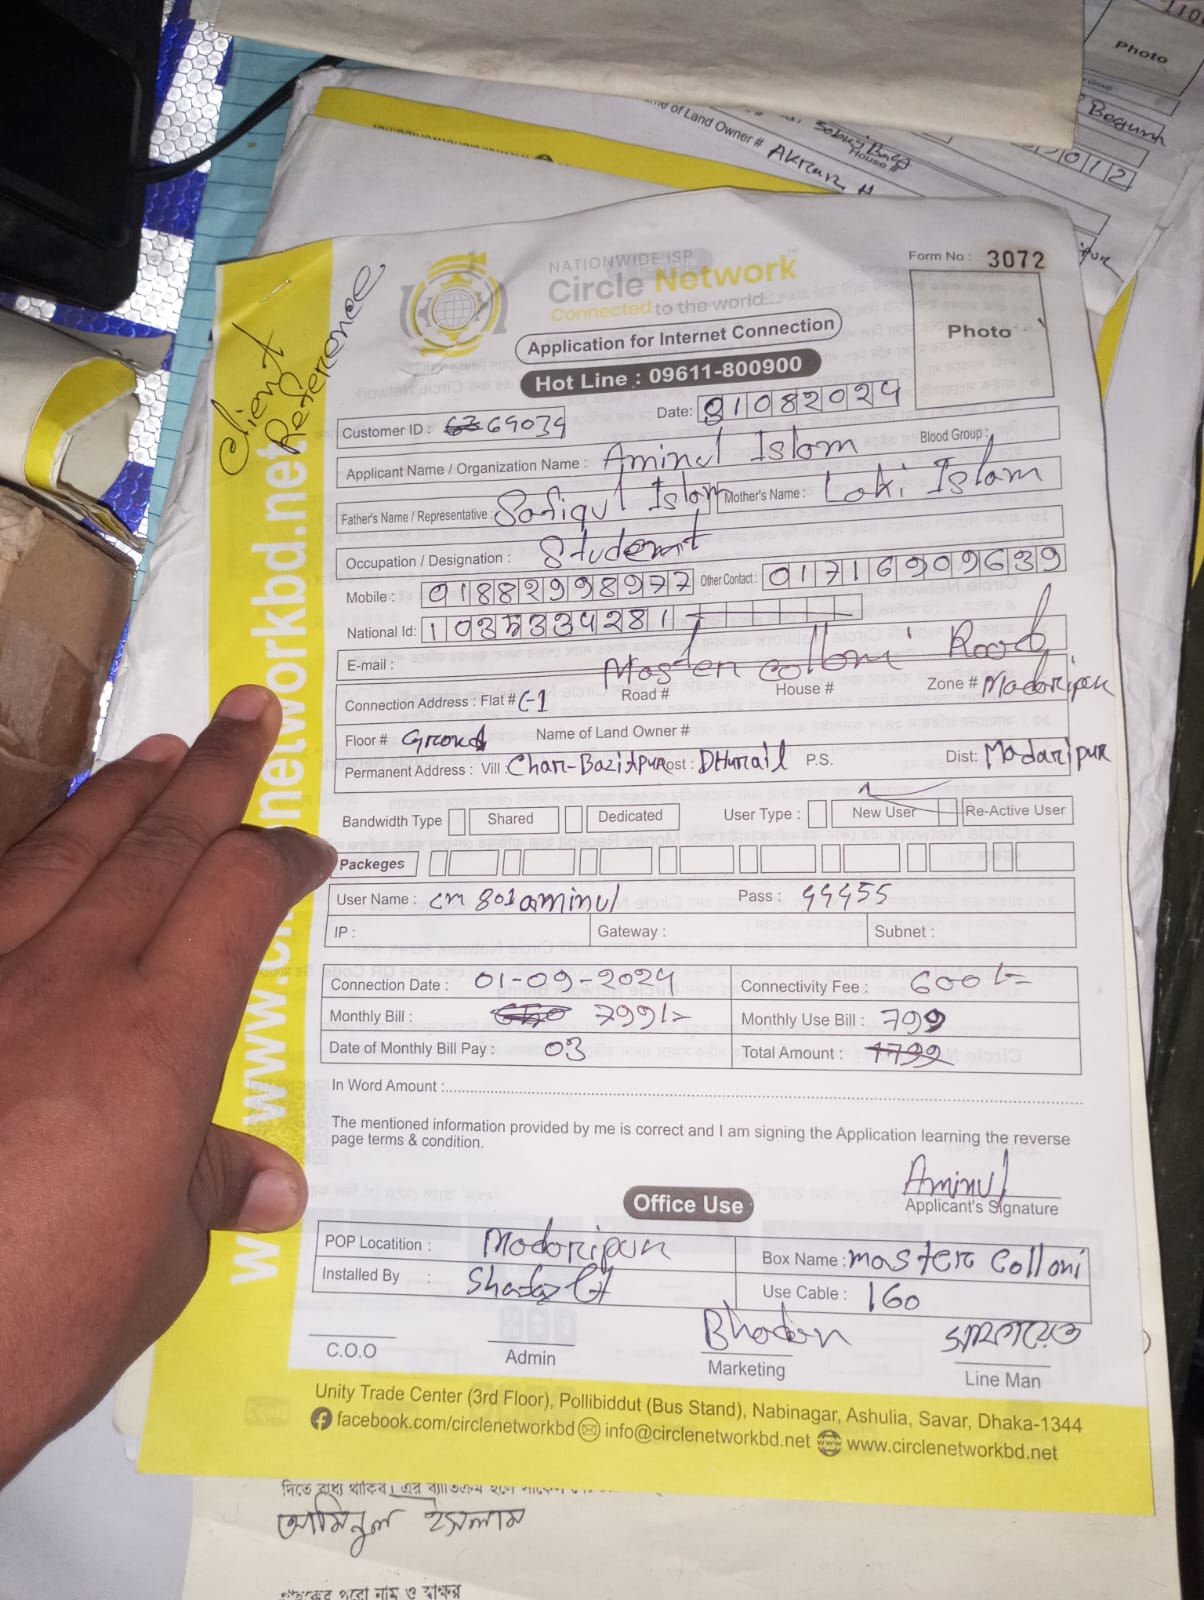 Photo
Begum
of Land Owner #
House #
012
NATIONWIDE ISP
Circle Network
Connected to the world...
Form No : 3072
Photo
Application for Internet Connection
Hot Line : 09611-800900
Client Reference
Date:
Customer ID : 69039
Applicant Name / Organization Name : Aminul Islam Blood Group :
Father's Name / Representative : Sofiqul Islam Mother's Name : Laki Islam
Occupation / Designation : Student
Mobile : 01882998977 Other Contact : 01716909639
National Id:
E-mail :
Master colloni Road
Connection Address : Flat # C-1 Road # House # Zone # Madaripur
Floor # Ground Name of Land Owner #
Permanent Address : Vill Char-Bazitpur Post : DHurail P.S. Dist: Madaripur
Bandwidth Type Shared Dedicated User Type : New User Re-Active User
Packeges
User Name : cm801aminul Pass : 44455
IP : Gateway : Subnet :
Connection Date : 01-09-2024 Connectivity Fee : 600/=
Monthly Bill : 799/= Monthly Use Bill : 799
Date of Monthly Bill Pay : 03 Total Amount : 1799
In Word Amount :
The mentioned information provided by me is correct and I am signing the Application learning the reverse
page terms & condition.
Aminul
Applicant's Signature
Office Use
POP Locatition : Madoripur Box Name : master Colloni
Installed By : Use Cable : 160
C.O.O Admin Marketing Line Man
Unity Trade Center (3rd Floor), Pollibiddut (Bus Stand), Nabinagar, Ashulia, Savar, Dhaka-1344
facebook.com/circlenetworkbd info@circlenetworkbd.net www.circlenetworkbd.net
আমিনুল ইসলাম